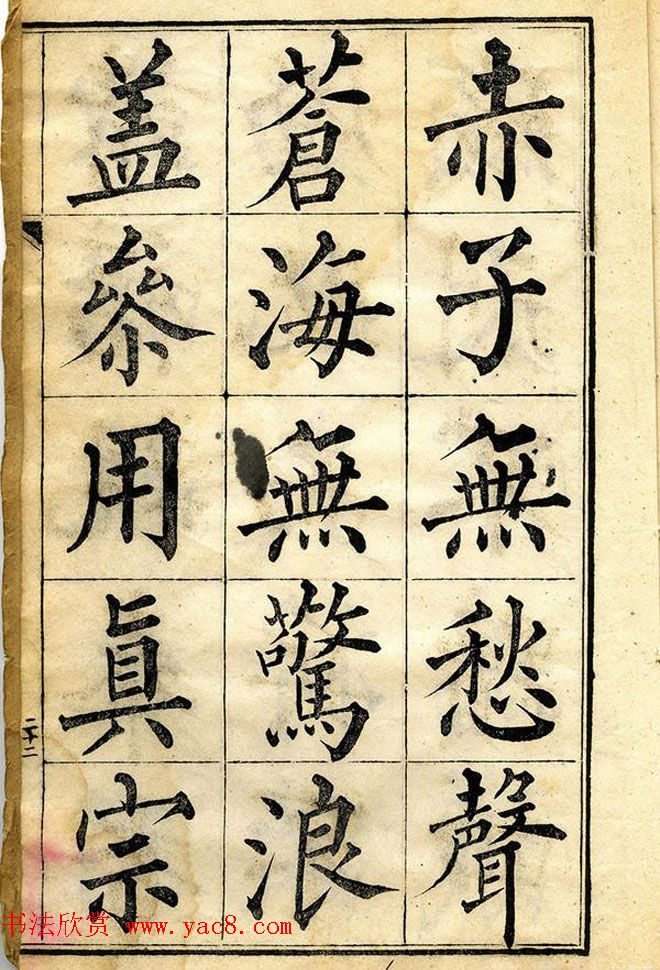 赤子無愁聲
蒼海無驚浪
盖叅用眞宗
二十二
书法欣赏 www.yac8.com